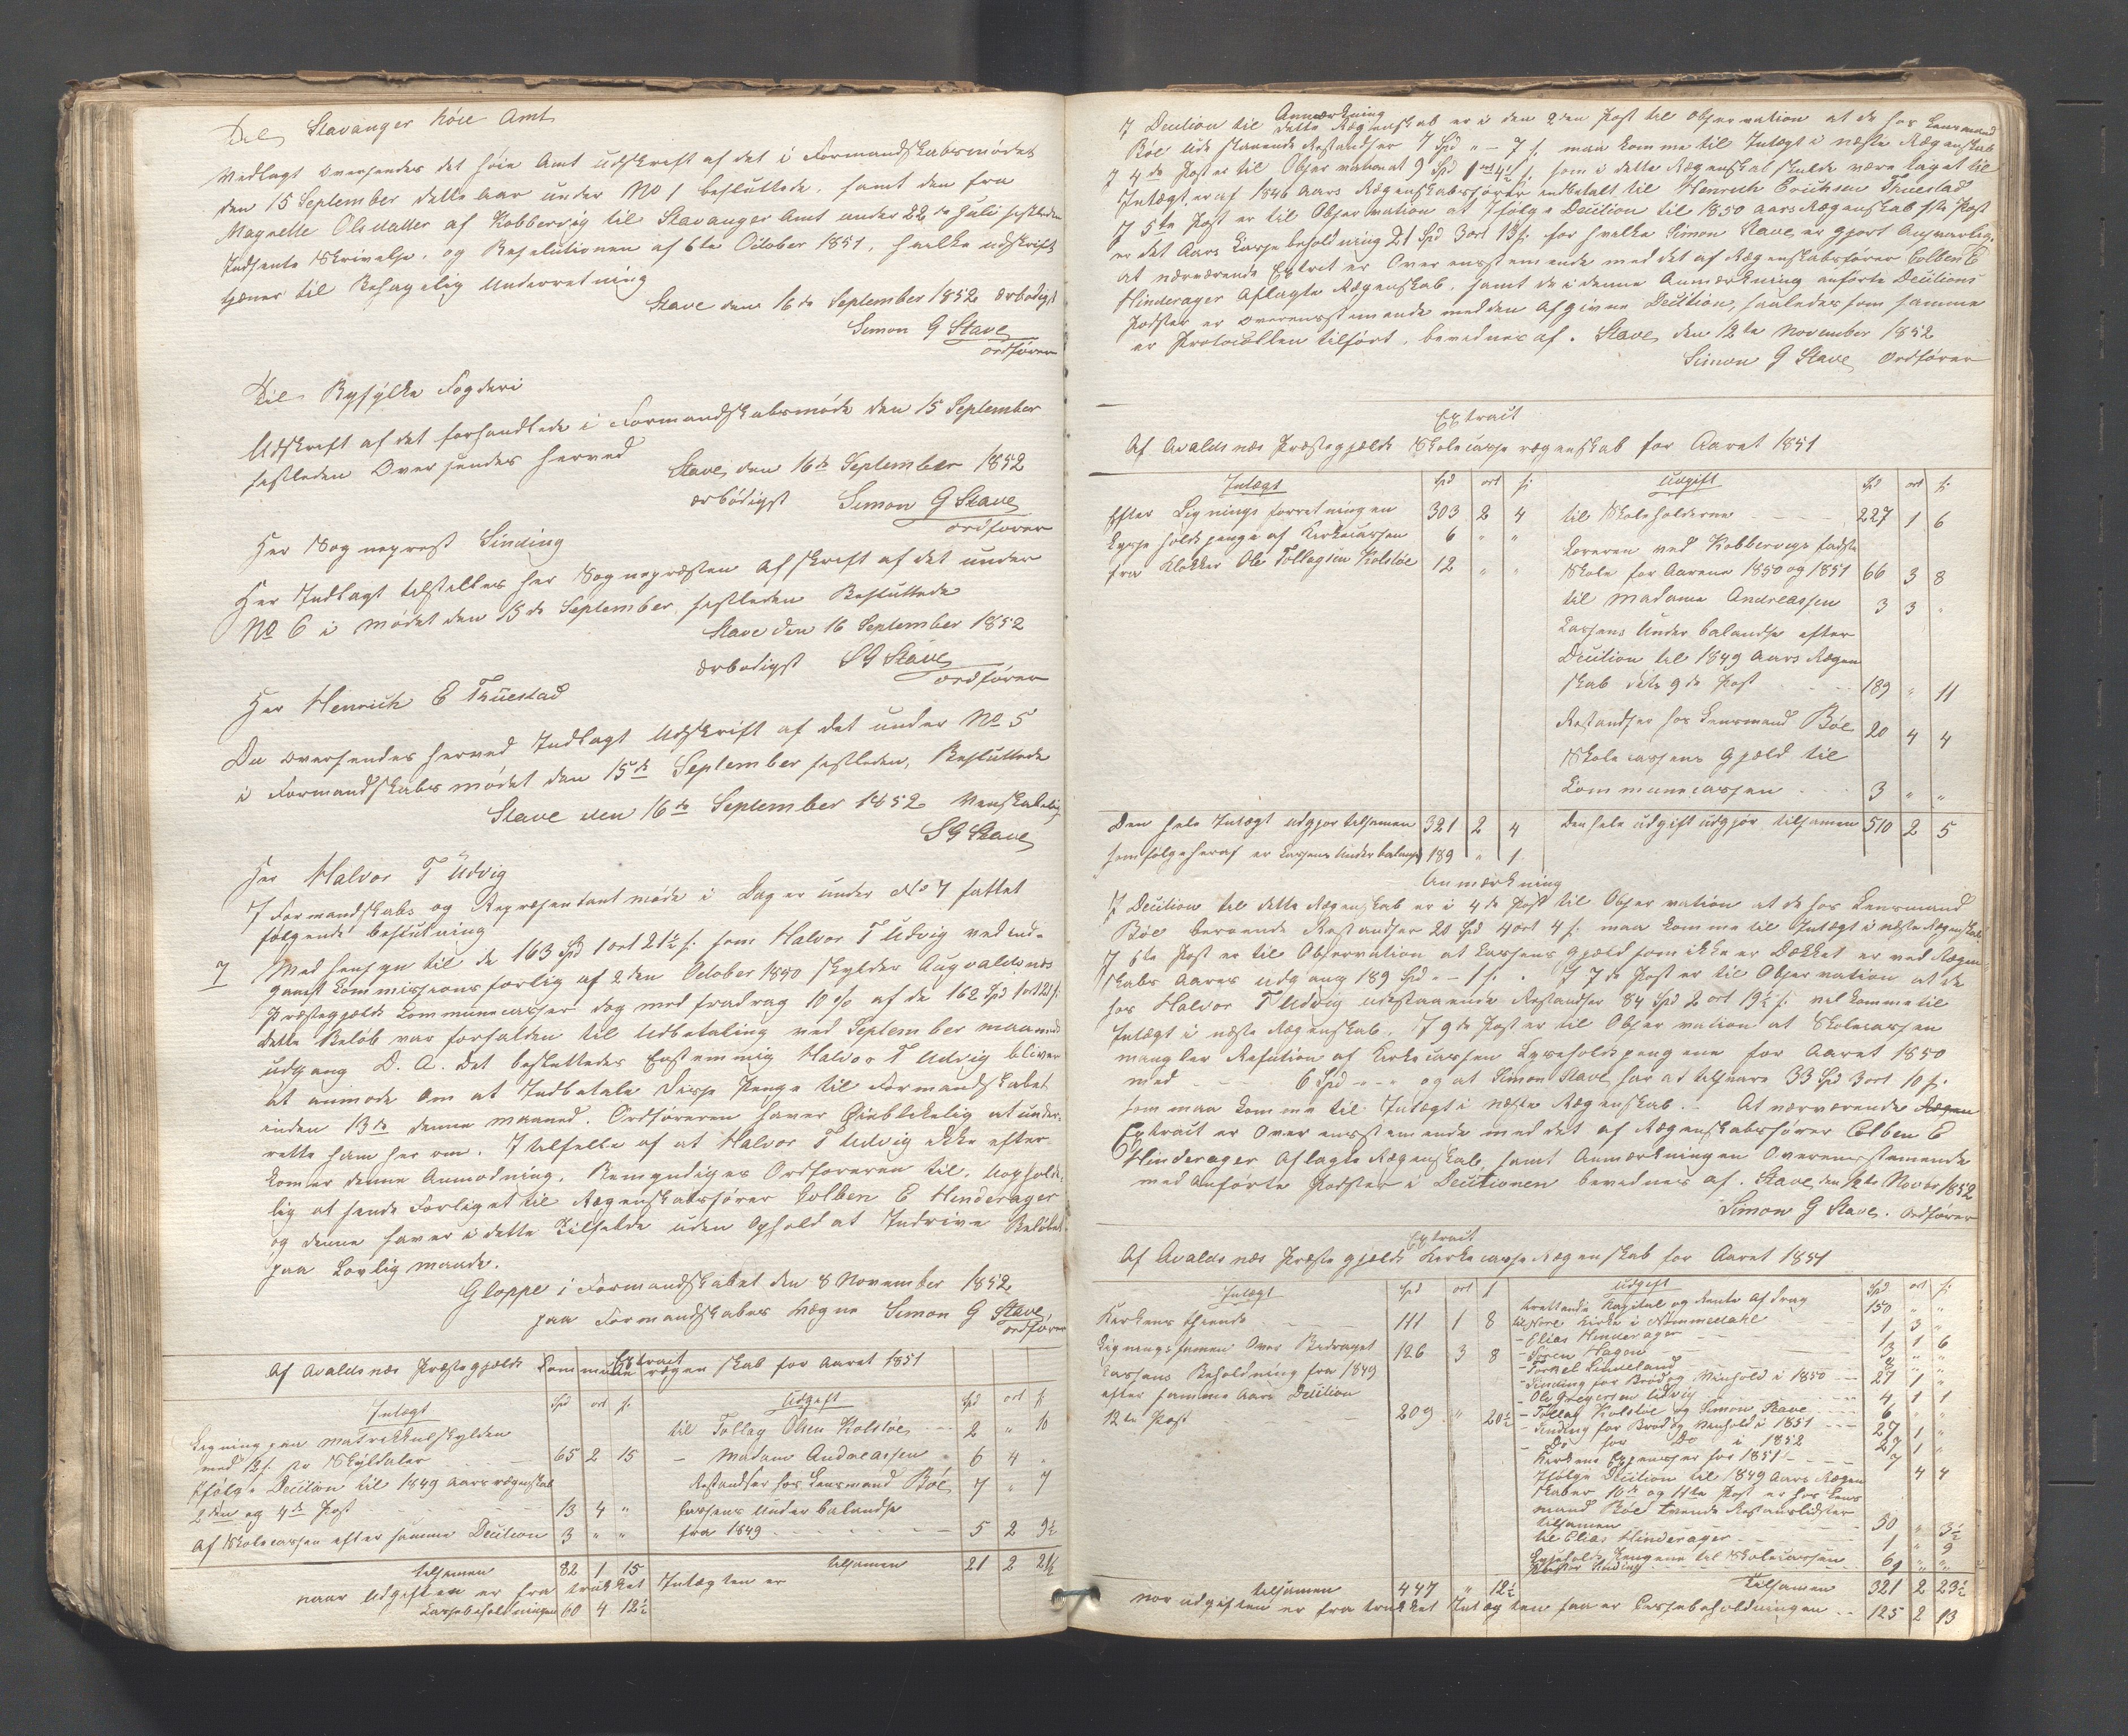 Til Stavanger höie Amt
Vedlagt Oversendes det höie Amt Udskrift af det i Formandskabsmödet
den 15 September dette Aar under No 1 besluttede, samt den fra
Magnette Olsdatter af Kobbervig til Stavanger Amt under 22de Juli sistleden
Indsente Skrivelse, og Resolutionen af 6te October 1851, hvilke udskrift
tjener til Behagelig Underretning
Stave den 16de September 1852 ærbødigst
Simon G Stave
ordförer
Til Ryfylke Fogderi
Udskrift af det forhandlede i Formandskabsmöde den 15 September
sistleden Oversendes herved
Stave den 16de September 1852
ærbödigst Simon G Stave
ordförer
Her Sogneprest Sinding
Her Indlagt tilstilles her Sognepræsten Afskrift af det under
No 6 i Mödet den 15de September sistleden Besluttede
Stave den 16 September 1852
ærbödigst S G Stave
ordförer
Her Henrich E Truestad
Da Oversendes herved Indlagt Udskrift af det under No 5
i Formandskabsmödet den 15de September sistleden, Besluttede
Stave den 16de September 1852 Venskabelig
S G Stave
Her Halvor T Udvig
I Formandskabs og Repræsentant möde i Dag er under No 7 fattet
fölgende beslutning
7 Med hensyn til de 163 Spd 1 ort 21½ s: som Halvor T Udvig ved ind-
gaaet Kommissions forlig af 2den October 1850 skylder Augvaldsnes
Præstegjelds Communecasser dog med fradrag 10 % af de 162 Spd 1 ort 21 s:
dette Belöb var forfalden til Udbetaling ved September maaneds
udgang D. A. Det besluttedes Enstemmig Halvor T Udvig bliver
at anmode om at Indbetale Disse Penge til Formandskabet
inden 13de denne maaned. Ordföreren haver Öieblikelig at under-
rette ham her om. I tilfelle af at Halvor T Udvig ikke efter-
komer denne Anmodning, Bemyndiges Ordföreren til, uophold-
lig at sende Forliget til Regenskabsförer Colben E Hinderager
og denne haver i dette Tilfelde uden Ophold at Indrive Belöbet
paa Lovlig maade.
Gloppe i Formandskabet den 8 November 1852
paa Formandskabes vegne Simon G Stave
ordförer
Extract
Af Avaldsnæs Præstegjelds Kommune regenskab for Aaret 1851
Intægt Spd ort s: Udgift Spd ort s
Ligning paa matrikkulskylden til Tollag Olsen Kolstöe 2 " 10
med 12 s. pr Skyldaler 65 2 15 - Madam Andreassen 6 4 "
Ifölge Decition til 1849 Aars regenskab Restandser hos Lensmand Böe 7 " 7
2den og 4de Post 13 4 " Cassens Underbalandse
Af Skolecassen efter samme Decition 3 " " fra 1849 5 2 9½
tilsamen 82 1 15 tilsamen 21 2 2½
naar Udgiften er fra trukket Intægten er
Cassebeholdningen 60 4 12½
I Decition til dette Anmærkning Regenskab er i den 2den Post til Observation at de hos Lensmand
Böe ude staaende Restandser 7 Spd " - 7 s. maa komme til Intægt i næste Regenskab
I 4de Post er til Observation at 9 Spd 1 ort 4½ s. som i dette Regenskab skulde være taget til
Intægt, er af 1846 Aars Regenskabsförer indbetalt til Henrich Erichsen Truestad
I 5te Post er til Observation at Ifölge Decition til 1850 aars Regenskab 1ste Post
er det Aars Cassebeholdning 21 Spd 3 ort 13 s. for hvilke Simon Stave er gjort Ansvarlig.
at nærværende Extrct er Overensstemende med det af Regenskabsförer Colben E
Hinderager Aflagte Regenskab, samt de i denne Anmærkning anförte Decitions
Podster er overensstemende med den Afgivne Decition, saaledes som samme
er Protocollen tilfört, bevidnes af. Stave den 12te November 1852
Simon G Stave Ordförer
Extract
Af Avaldsnæs Præstegjelds Skolecasse regenskab for Aaret 1851
Intægt Spd ort s: Udgift Spd ort s:
Efter Lignings forretningen 303 2 4 til Skoleholderne 227 1 6
Lysse holds penge af Kirkecassen 6 " " Læreren ved Kobbervigs fadste
fra Klokker Ole Tollagsen Kolstöe 12 " " Skole for Aarene 1850 og 1851 66 3 8
til Madame Andreassen 3 3 "
Cassens Under balandse efter
Decition til 1849 Aars Regen
skab dets 9de Post 189 " 11
Restandser hos Lensmand Böe 20 4 4
Skolecassens Gjæld til
Communecassen 3 " "
Den hele Intægt udgjör tilsamen 321 2 4 Den hele udgift udgjör tilsamen 510 2 5
som fölge heraf er Cassens Underbalanse 189 " 1
Anmærkning
I Decition til dette Regenskab er i 4de Post til Observation at de hos Lensmand
Böe beroende Restandser 20 Spd 4 ort 4 s: maa komme til Intægt i næste Regenskab.
I 6te Post er til Observation at Cassens Gjæld som ikke er Dækket er ved Regen-
skabs Aarets udgang 189 Spd - - 1 s. . I 7de Post er til Observation at de
hos Halvor T Udvig udestaaende Restandser 84 Spd 2 ort 19½ s. vil komme til
Intægt i næste Regenskab. I 9de Post er til Observation at Skolecassen
mangler Refution af Kirkecassen Lyseholdspengene for Aaret 1850
med - - 6 Spd - - - og at Simon Stave har at tilsvare 33 Spd 3 ort 10 s.
som maa komme til Intægt i næste Regenskab. - At nærværende Regen
Extract er Overensstemende med det af Regenskabsförer Colben E
Hinderager Aflagte Regenskab, samt Anmærkningen Overensstemende
med Anförte Podster i Decitionen bevidnes af. Stave den 12te Novbr 1852
Simon G Stave. Ordförer
Extract
Af Avaldsnæs Præstegjelds Kirkecasse Regenskab for Aaret 1851
Intægt Spd ort s Udgift Spd ort s:
Kirkens thiende 111 1 8 Kapital og Rente Afdrag 150 " "
til Nore Kirke i Nummedahl 1 3 "
Ligningssumen Over Bedraget 126 3 8 - Elias Hinderager 1 1 6
- Sören Hagen 3 " "
Cassens Beholdning fra 1849 - Torkel Lindeland
efter samme Aars Decition - Sinding for Bröd og Vinhold i 1850 27 1 "
12te Post 209 " 20½ - Ole Gregersen Udvig 4 1 1
- Tollag Kolstöe og Simon Stave 6 " "
- Sinding for Bröd og Vinhold i 1851 27 1 "
- Do for Do i 1852 27 1 "
Kirkens Expenser for 1851 7
Ifölge Decition til 1849 Aars Regen 4 4
skaber 10de og 11te Post er hos Lens
mand Böe tvende Restanslister
tilsamen 50 " 3½
til Elias Hinderager 1 " 9
Lyseholds Pengene til Skolecassen 6 " "
Pastor Sinding 9 " "
tilsamen 447 " 12½ tilsamen 321 2 23½
nor udgiften er fra trukket Intægten saa er Cassebeholdningen 125 2 13